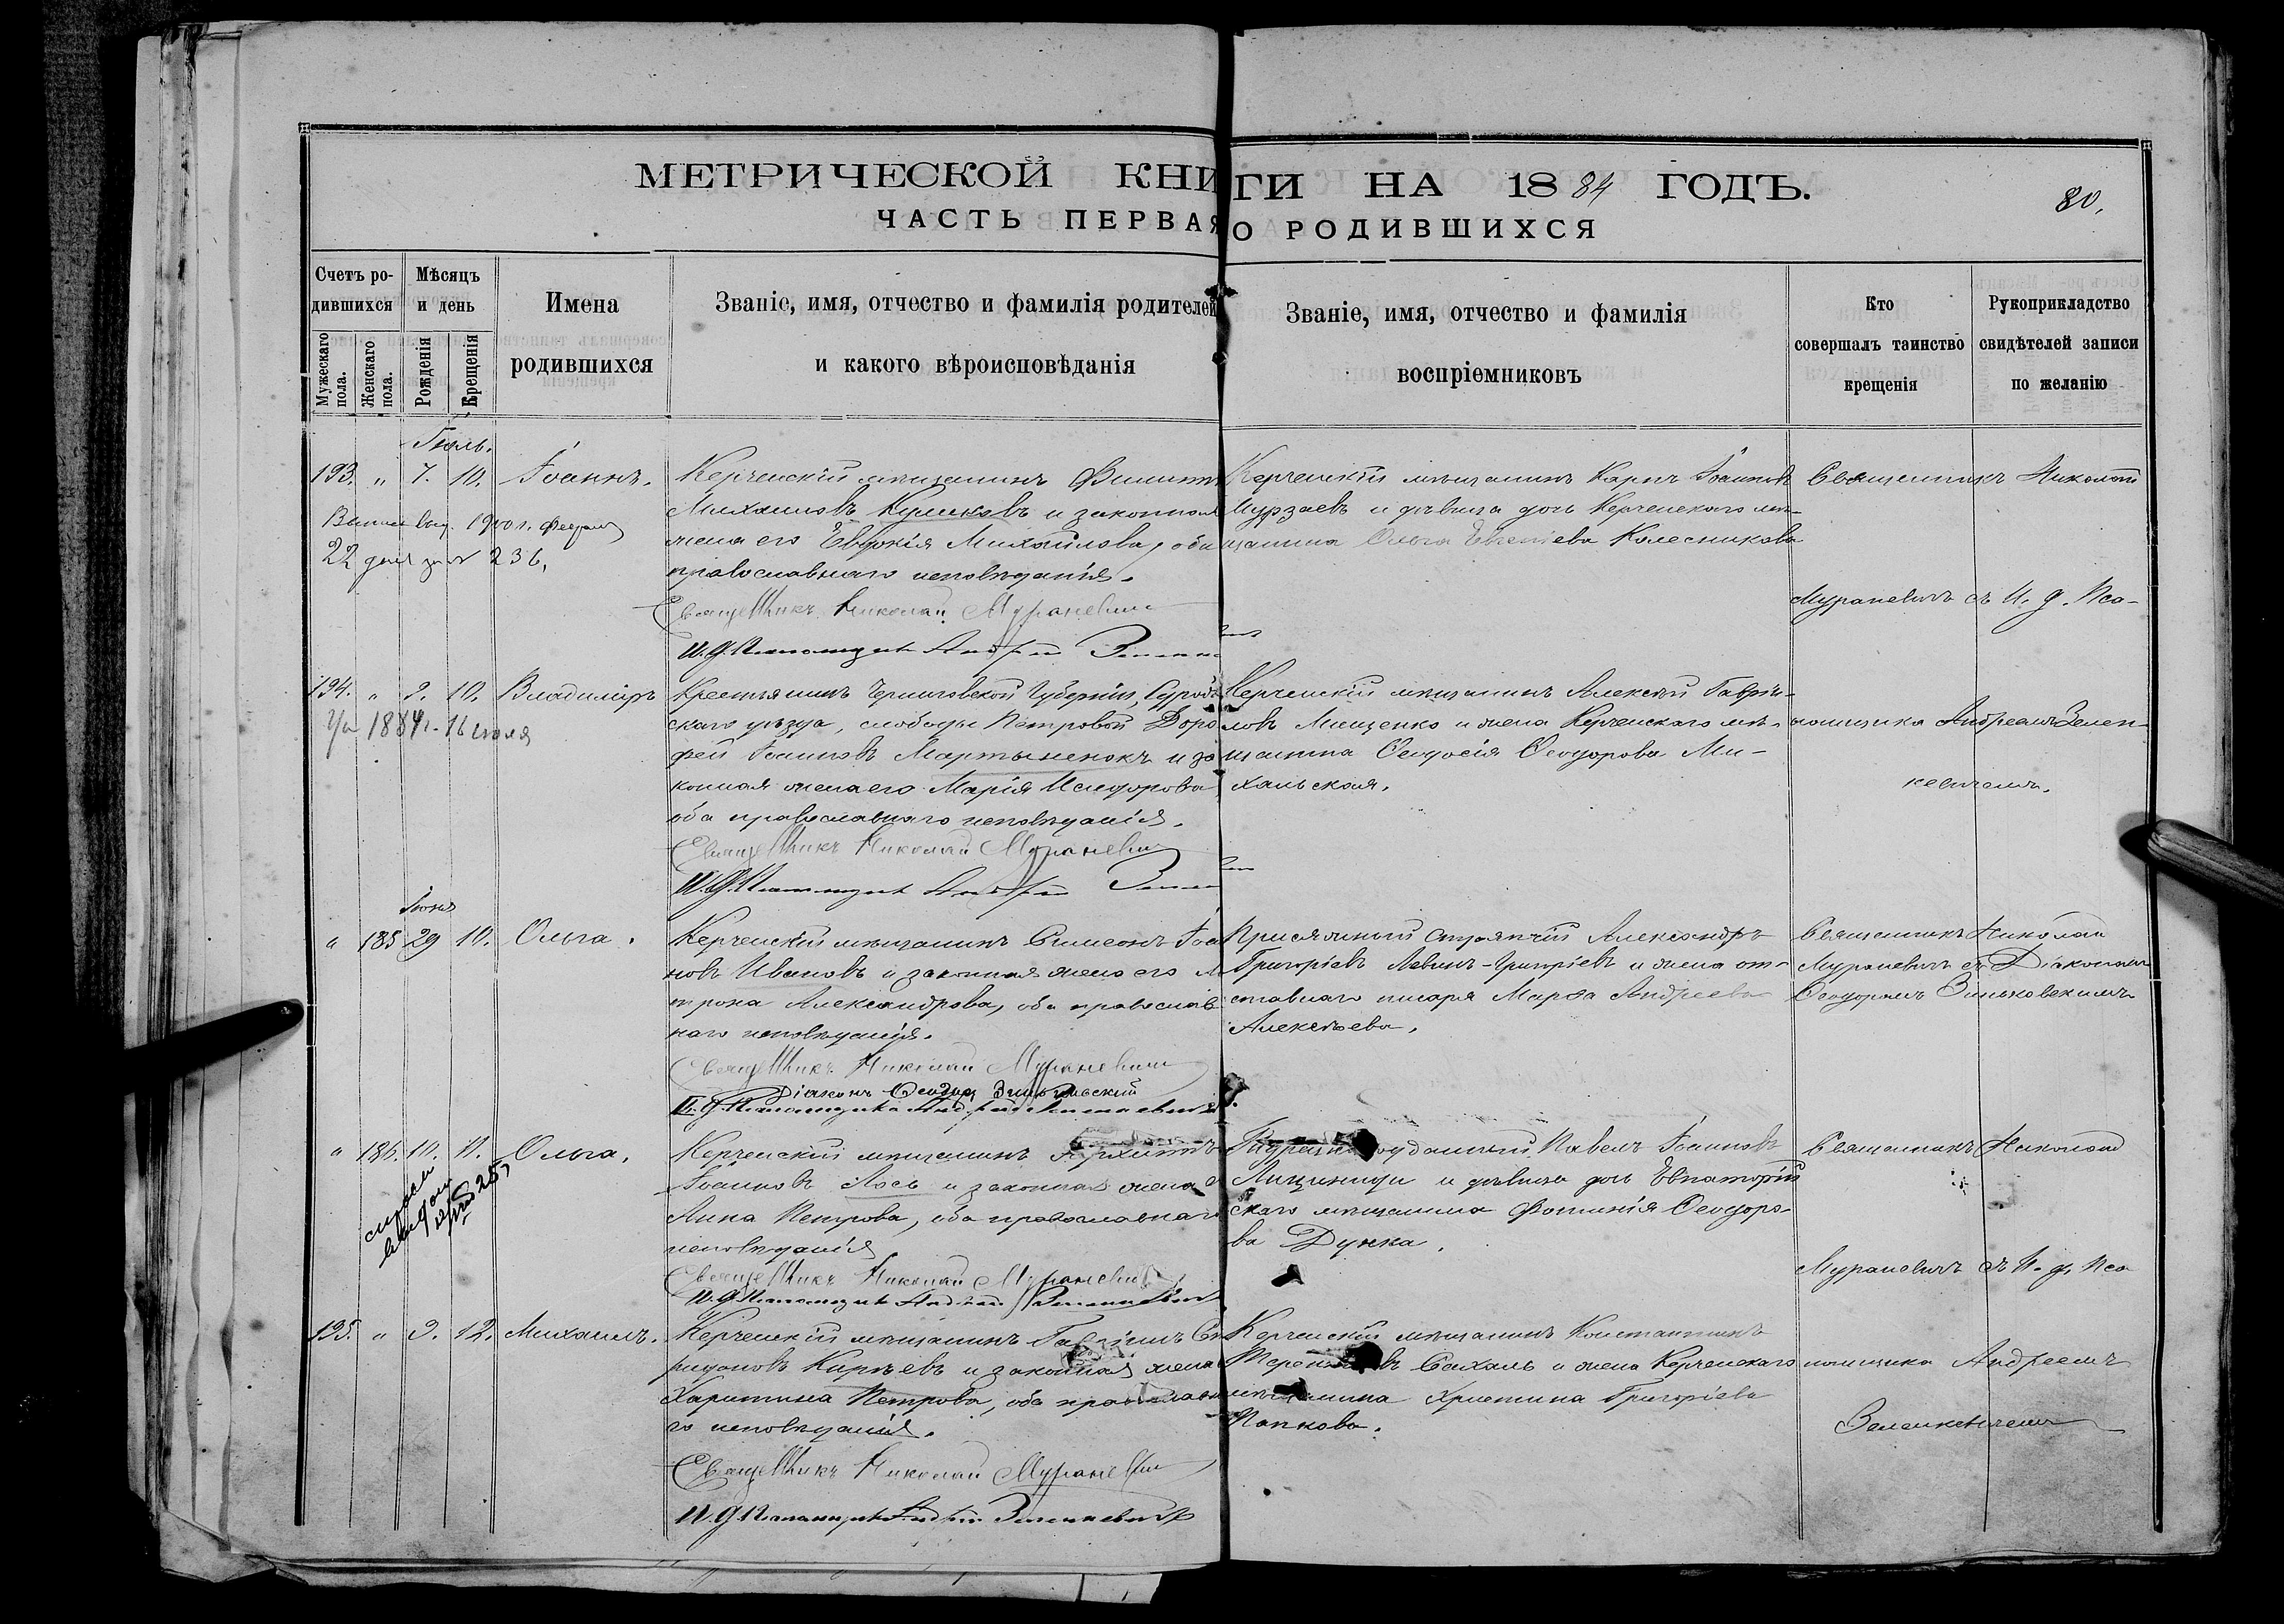 МЕТРИЧЕСКОЙ КНИГИ НА 1884 ГОДЪ.
80.
ЧАСТЬ ПЕРВАЯ О РОДИВШИХСЯ
Счетъ родившихся
Мужескаго пола.
Женскаго пола.
Мѣсяцъ и день
Рожденія
Крещенія
Имена
родившихся
Званіе, имя, отчество и фамилія родителей
и какого вѣроисповѣданія
Званіе, имя, отчество и фамилія
воспріемниковъ
Кто
совершалъ таинство
крещенія
Рукоприкладство
свидѣтелей записи
по желанію
Іюль.
193. " 7. 10. Іоаннъ.
22 дня за № 236,
Керченскій мѣщанинъ
Михаиловъ Куликовъ и законная
жена его Евдокія Михайлова, оба
православнаго исповѣданія.
Священникъ Николай Мураневичъ
Керченскій мѣщанинъ Карпъ Іоанновъ
Мурзаевъ и дѣвица дочь Керченскаго мѣ-
щанина Ольга Евгеніева Колесникова
Священникъ Николай
Мураневичъ съ И. д. Пса-
194. " 9. 10. Владиміръ
Ум. 1884 г. 16 іюля
Крестьянинъ Черниговской Губерніи,
скаго уѣзда, слободы Петровой Доро
фей Іоанновъ Мартыненокъ и за
конная жена его Марія Исидорова
оба православнаго исповѣданія.
Священникъ Николай Мураневичъ
Керченскій мѣщанинъ Алексѣй Гаврі-
ловъ Мищенко и жена Керченскаго мѣ-
щанина Ѳеодосія Ѳеодорова Ми-
хальская.
ломщика Андреемъ Зелен-
кевичемъ.
Іюнь
" 185 29 10. Ольга.
Керченскій мѣщанинъ Симеонъ Іоан
новъ Ивановъ и законная жена его М
трона Александрова, оба православ
наго исповѣданія.
Священникъ Николай Мураневичъ
Діаконъ Ѳеодоръ Зиньковскій
Присяжный Стряпчій Александръ
Григоріевъ Левинъ-Григоріевъ и жена от-
ставнаго писаря Марѳа Андреева
Алексѣева.
Священникъ Николай
Мураневичъ съ Діакономъ
Ѳеодоромъ Зиньковскимъ
" 186. 10. 11. Ольга.
Керченскій мѣщанинъ
Іоанновъ Лось и законная жена е
Анна Петрова, оба православнаго
исповѣданія
Священникъ Николай Мураневичъ
Павелъ Іоанновъ
и дѣвица дочь Евпаторій
скаго мѣщанина Фотинія Ѳеодоро-
ва Дукка.
Священникъ Николай
Мураневичъ съ И. д. Пса
195. " 9. 12. Михаилъ.
Керченскій мѣщанинъ Гавріилъ Спи
ридоновъ Кирѣевъ и законная жена
Харитина Петрова, оба православна
го исповѣданія.
Священникъ Николай Мураневичъ
Керченскій мѣщанинъ Константинъ
Сахаль и жена Керченскаго
мѣщанина Христина Григоріева
Папкова.
ломщика Андреемъ
Зеленкевичемъ